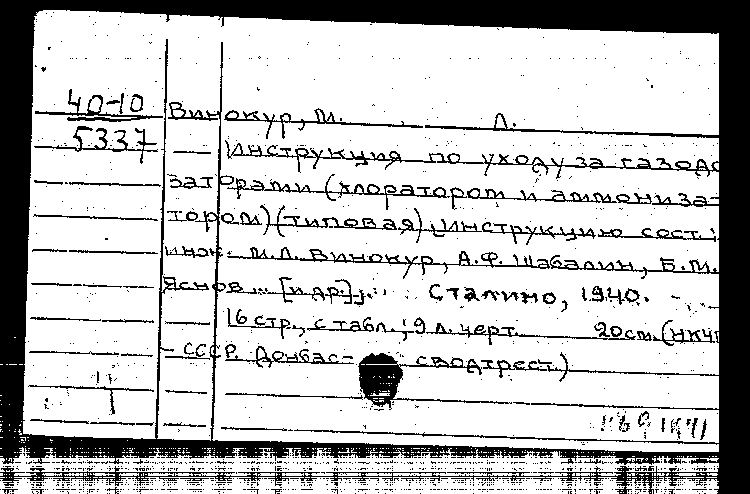 40-10
5337
Винокур, М. Л.
— Инструкция по уходу за газодо
заторами (хлоратором и аммониза-
тором) (типовая); инструкцию сост.:
инж. М.Л. Винокур, А.Ф. Шабалин, Б.М.
Яснов... [и др.]; Сталино, 1940.
16 стр., с табл.; 9 л. черт. 20 см. (НКЧМ
- СССР. Донбас- сводтрест.)